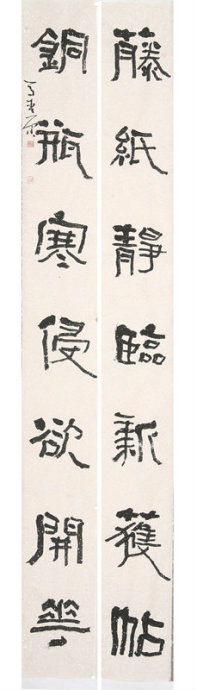 藤紙靜臨新獲帖
銅瓶寒侵欲開華